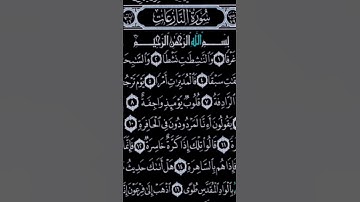 سُورَةُ النَّازِعَاتِ
بِسْمِ اللَّهِ الرَّحْمَٰنِ الرَّحِيمِ
غَرْقًا ١ وَالنَّاشِطَاتِ نَشْطًا ٢ وَالسَّابِحَاتِ
سَبْقًا ٤ فَالْمُدَبِّرَاتِ أَمْرًا ٥ يَوْمَ تَرْجُفُ
الرَّادِفَةُ ٧ قُلُوبٌ يَوْمَئِذٍ وَاجِفَةٌ ٨
يَقُولُونَ أَءِنَّا لَمَرْدُودُونَ فِي الْحَافِرَةِ ١٠
قَالُوا تِلْكَ إِذًا كَرَّةٌ خَاسِرَةٌ ١٢
فَإِذَا هُم بِالسَّاهِرَةِ ١٤ هَلْ أَتَاكَ حَدِيثُ
بِالْوَادِ الْمُقَدَّسِ طُوًى ١٦ اذْهَبْ إِلَىٰ فِرْعَوْنَ